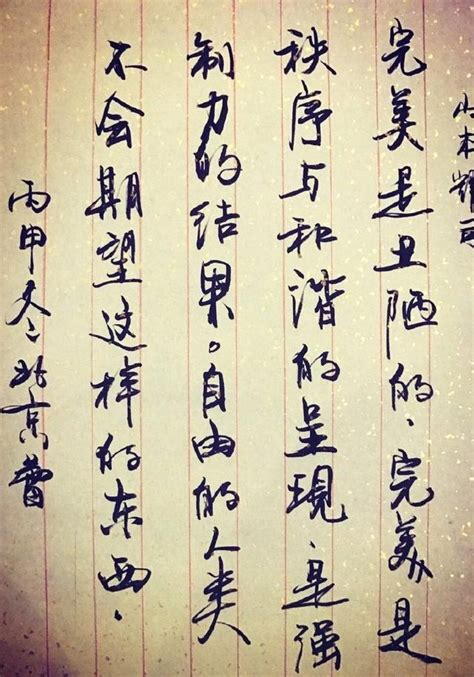 山本耀司
完美是丑陋的、完美是
秩序与和谐的呈現、是强
制力的结果。自由的人类
不会期望这样的东西、
丙申冬北京蕾